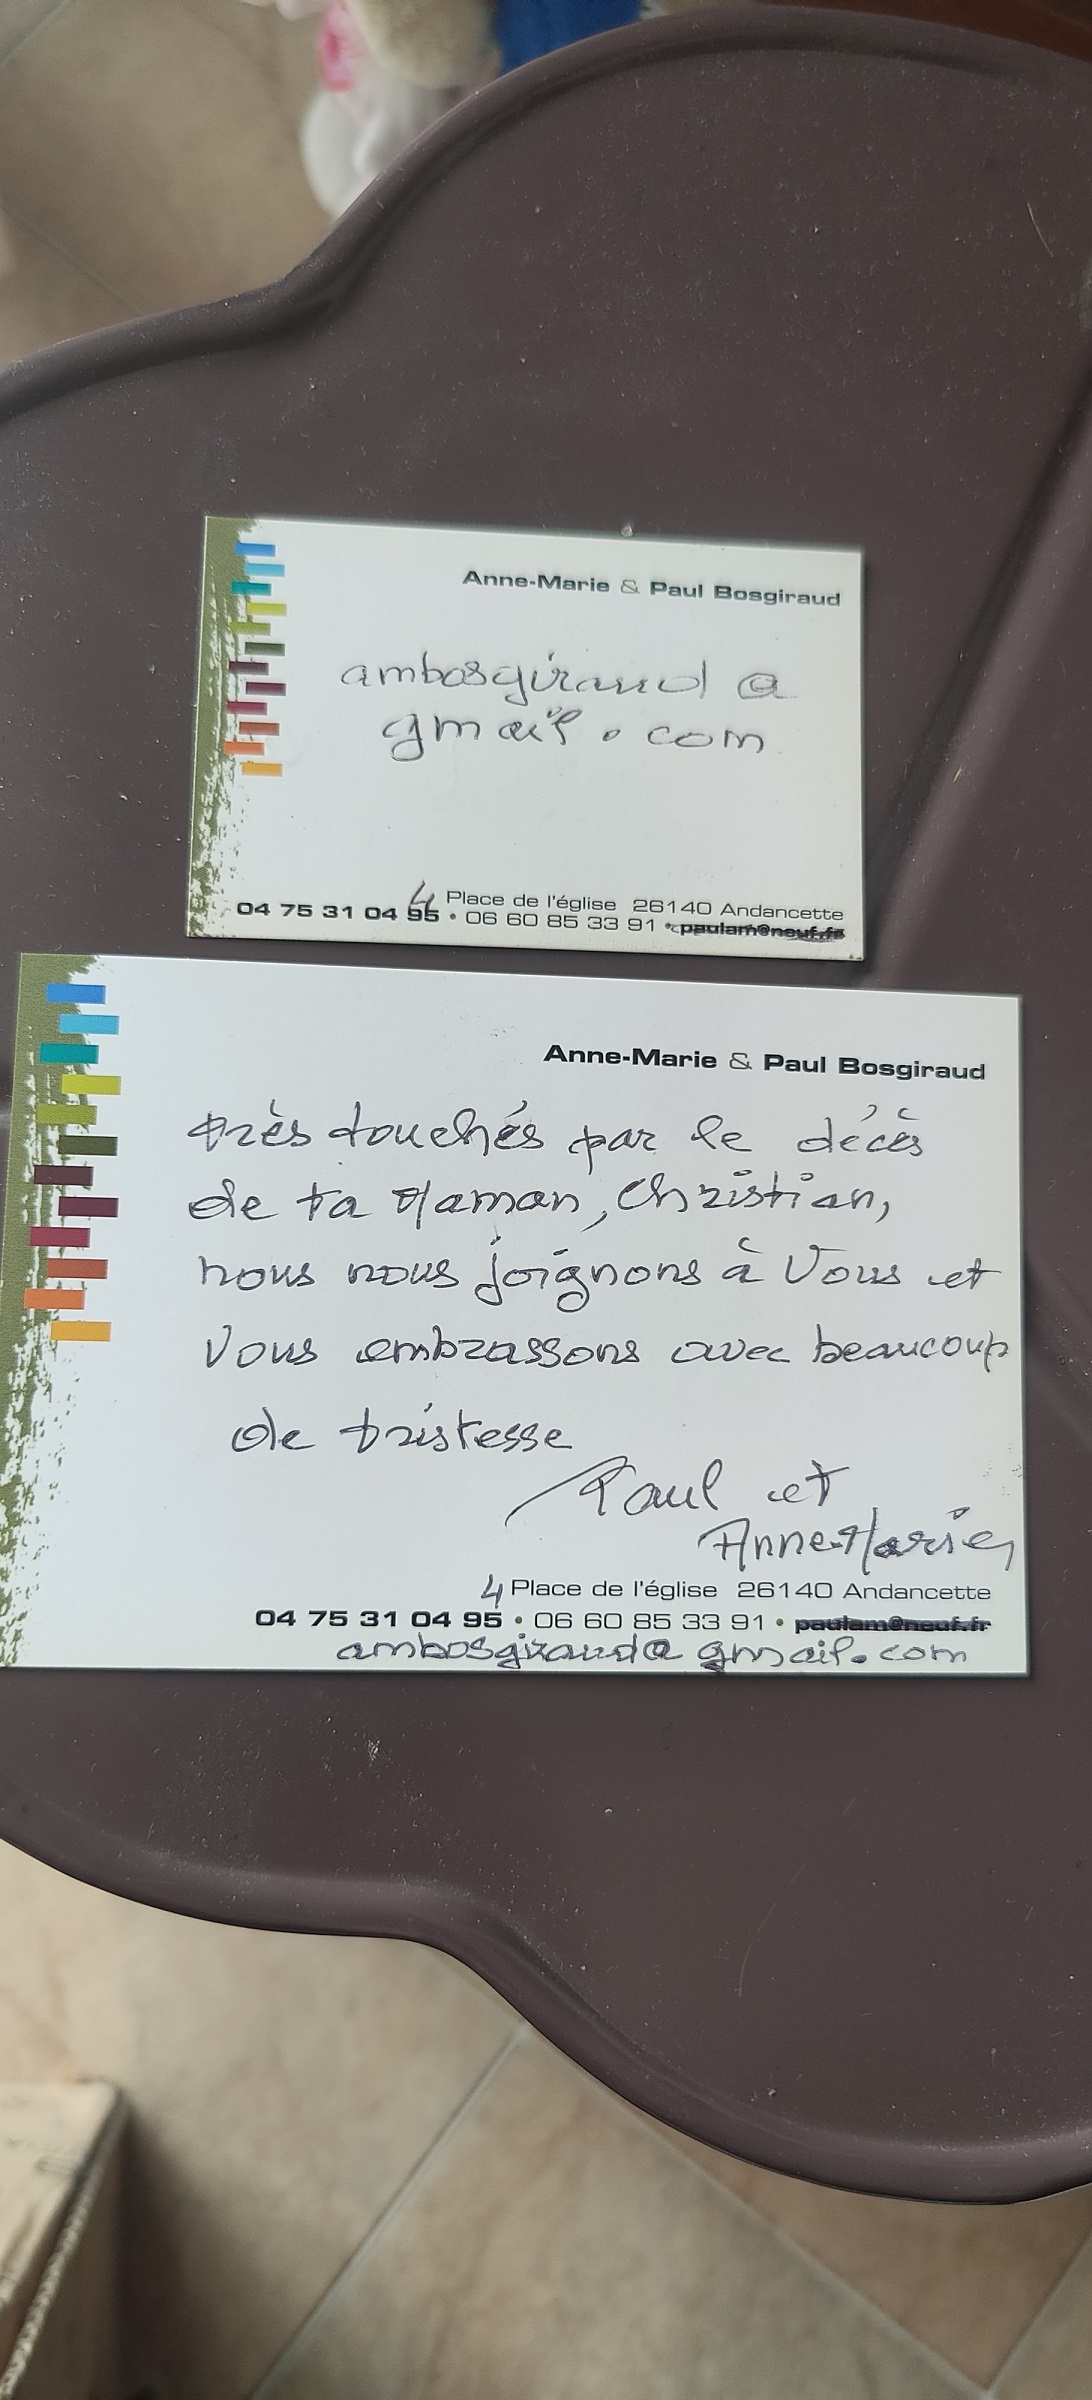 Anne-Marie & Paul Bosgiraud
ambosgiraud @
gmail.com
4 Place de l'église 26140 Andancette
04 75 31 04 95 • 06 60 85 33 91 • paulam@neuf.fr
Anne-Marie & Paul Bosgiraud
très touchés par le décès
de ta Maman, Christian,
nous nous joignons à Vous et
Vous embrassons avec beaucoup
de tristesse
Paul et
Anne-Marie
4 Place de l'église 26140 Andancette
04 75 31 04 95 • 06 60 85 33 91 • paulam@neuf.fr
ambosgiraud@gmail.com